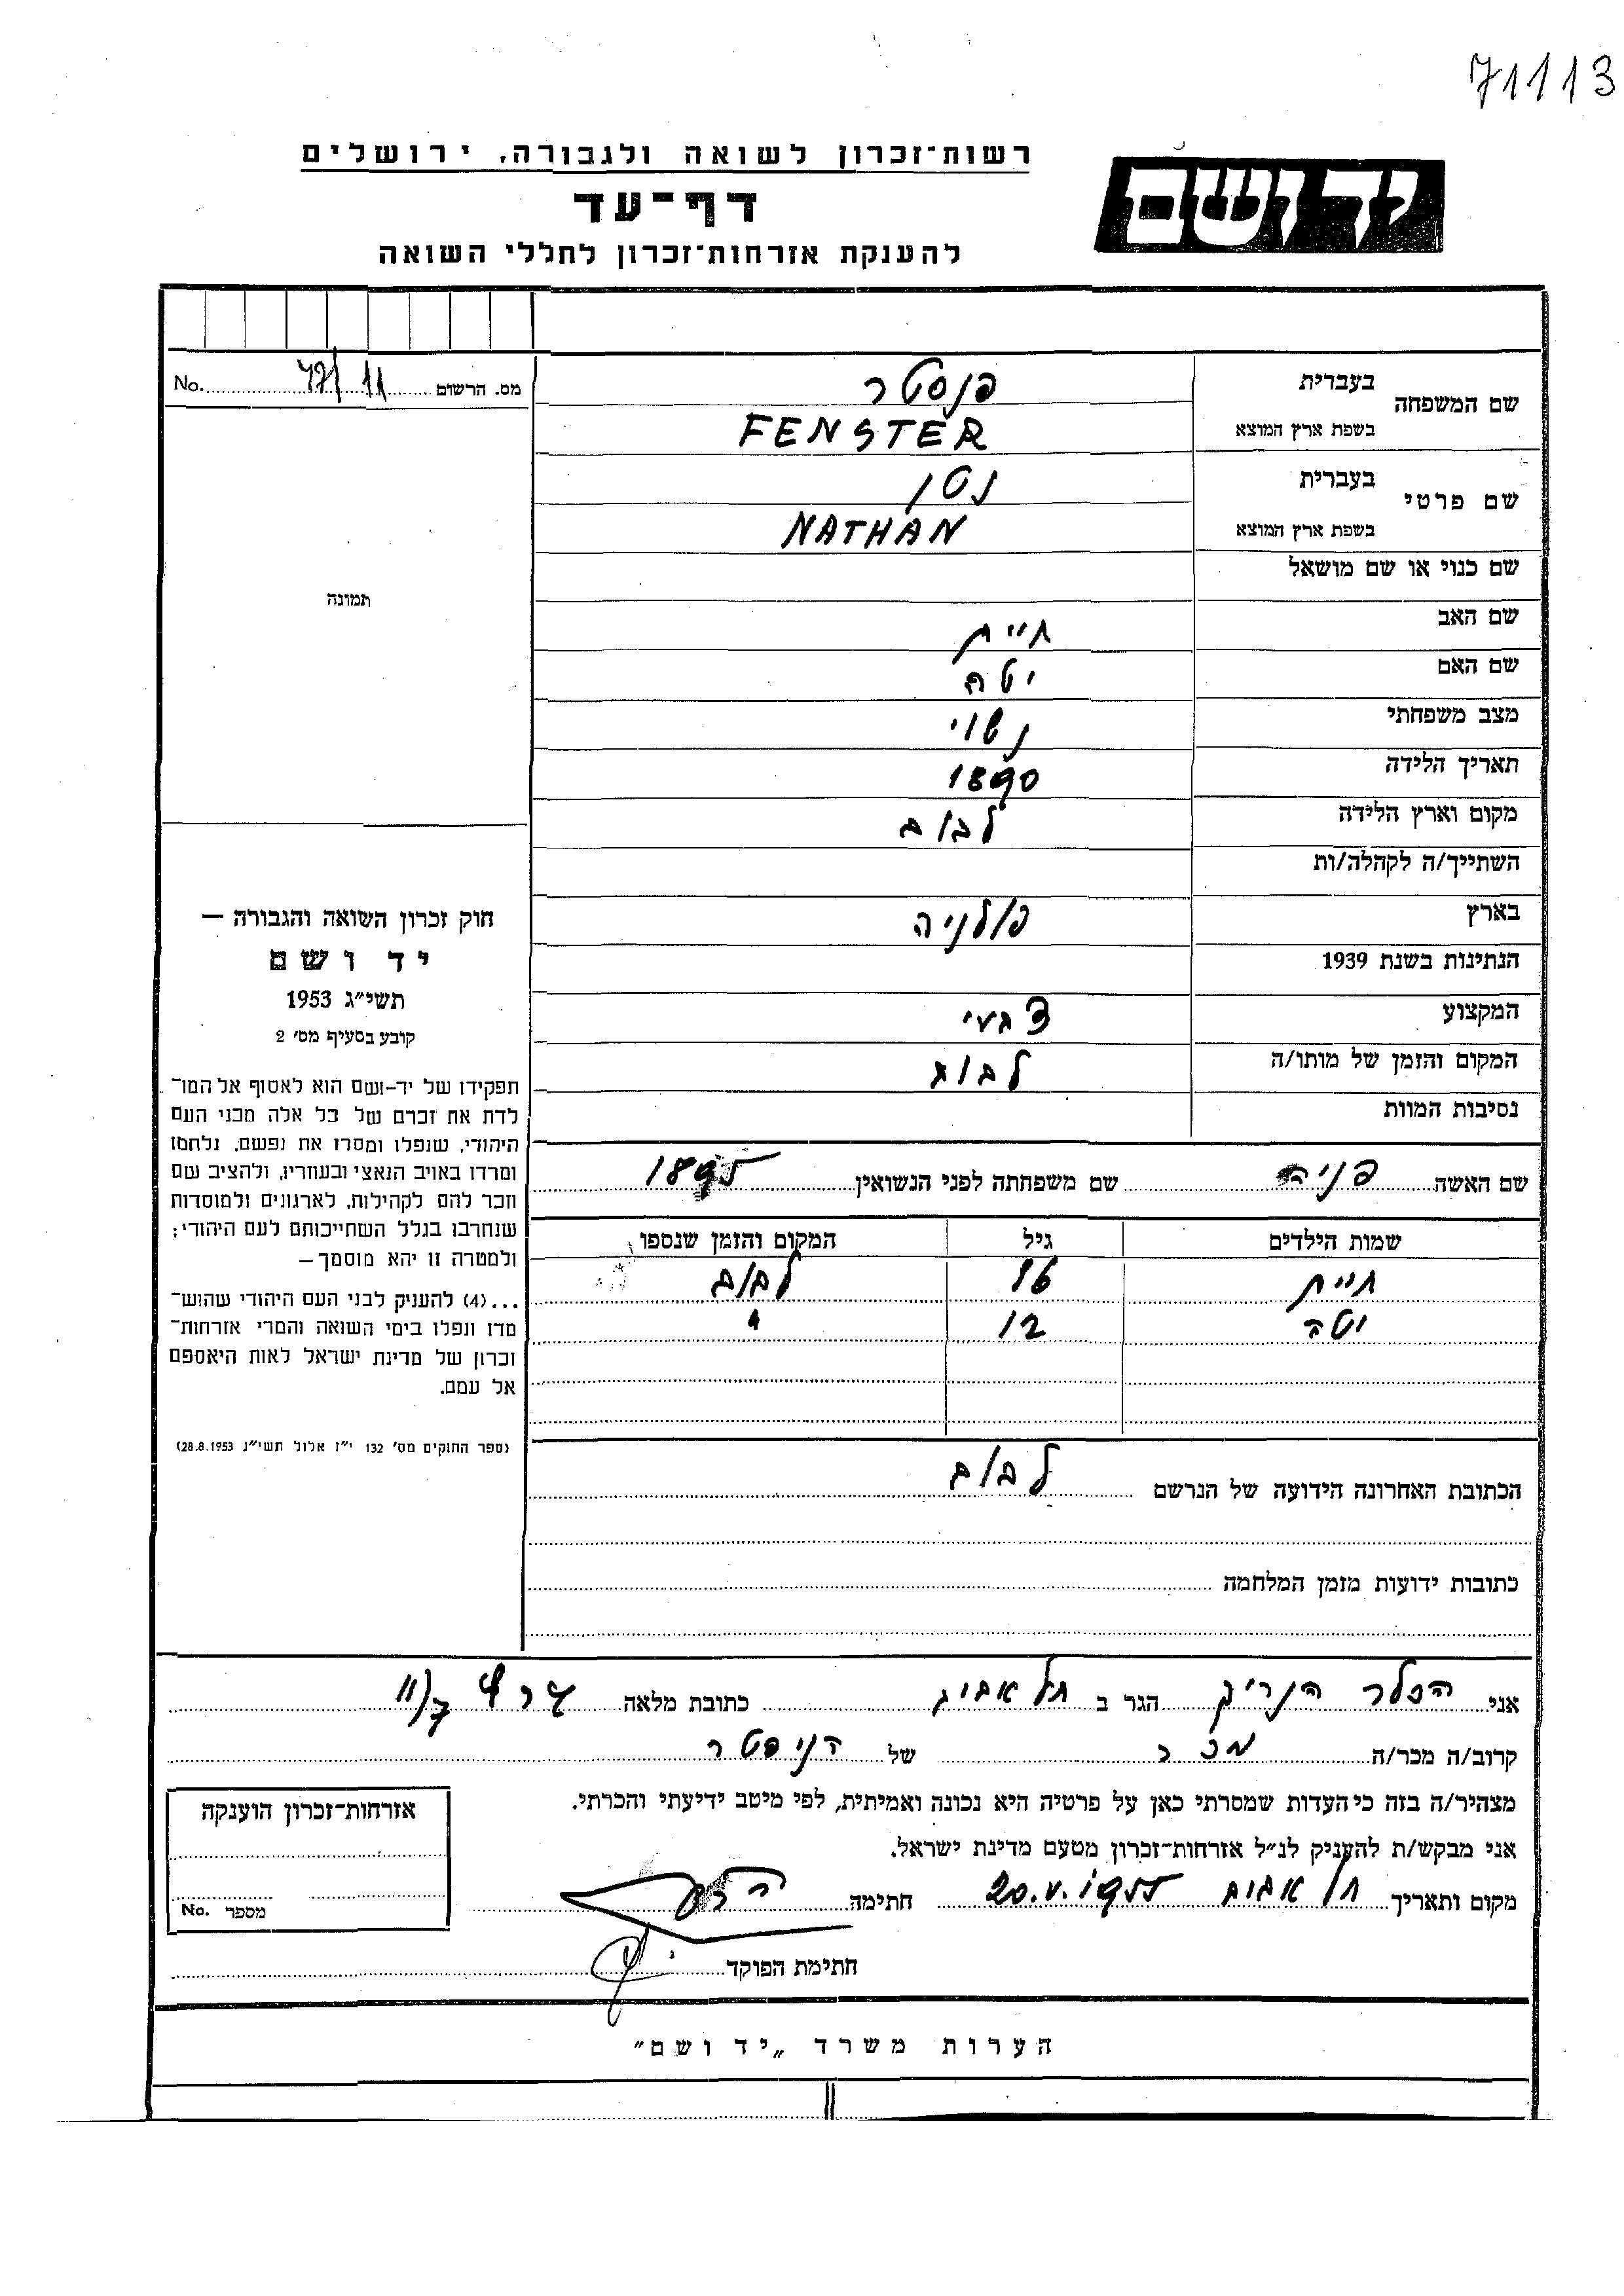 71113
רשות־זכרון לשואה ולגבורה, ירושלים
יד ושם
דף־עד
להענקת אזרחות־זכרון לחללי השואה
מס. הרשום No.
שם המשפחה בעברית פנסטר
בשפת ארץ המוצא FENSTER
שם פרטי בעברית נטן
בשפת ארץ המוצא NATHAN
שם כנוי או שם מושאל
תמונה
שם האב חיים
שם האם יטה
מצב משפחתי נשוי
תאריך הלידה 1890
מקום וארץ הלידה לבוב
השתייך/ה לקהלה/ות
בארץ פולניה
הנתינות בשנת 1939
המקצוע
המקום והזמן של מותו/ה לבוב
נסיבות המוות
חוק זכרון השואה והגבורה —
יד ושם
תשי״ג 1953
קובע בסעיף מס׳ 2
תפקידו של יד-ושם הוא לאסוף אל המו־
לדת את זכרם של כל אלה מבני העם
היהודי, שנפלו ומסרו את נפשם, נלחמו
ומרדו באויב הנאצי ובעוזריו, ולהציב שם
וזכר להם לקהילות, לארגונים ולמוסדות
שנחרבו בגלל השתייכותם לעם היהודי;
ולמטרה זו יהא מוסמך —
...(4) להעניק לבני העם היהודי שהוש־
מדו ונפלו בימי השואה והמרי אזרחות־
זכרון של מדינת ישראל לאות היאספם
אל עמם.
(ספר החוקים מס׳ 132 י״ז אלול תשי״ג 28.8.1953)
שם האשה פניה שם משפחתה לפני הנשואין 1895
שמות הילדים גיל המקום והזמן שנספו
חיים 16 לבוב
יטה 12 "
הכתובת האחרונה הידועה של הנרשם לבוב
כתובות ידועות מזמן המלחמה
אני הלר הנריק הגר ב תל אביב כתובת מלאה
קרוב/ה מכר/ה מכר של
מצהיר/ה בזה כי העדות שמסרתי כאן על פרטיה היא נכונה ואמיתית, לפי מיטב ידיעתי והכרתי.
אני מבקש/ת להעניק לנ״ל אזרחות־זכרון מטעם מדינת ישראל.
מקום ותאריך תל אביב 20.V.1955 חתימה
חתימת הפוקד
אזרחות־זכרון הוענקה
מספר No.
הערות משרד „יד ושם״